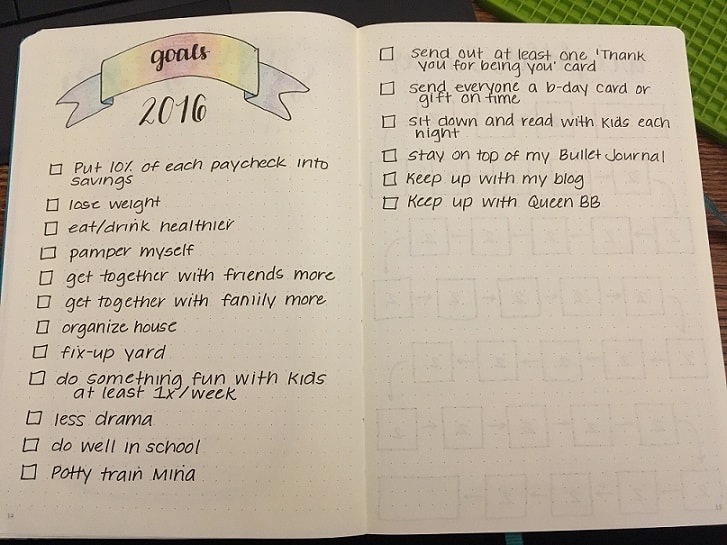 goals
2016
Put 10% of each paycheck into
savings
lose weight
eat/drink healthier
pamper myself
get together with friends more
get together with family more
organize house
fix-up yard
do something fun with kids
at least 1x/week
less drama
do well in school
Potty train Mina
14
send out at least one 'Thank
you for being you' card
send everyone a b-day card or
gift on time
sit down and read with kids each
night
stay on top of my Bullet Journal
Keep up with my blog
Keep up with Queen BB
15